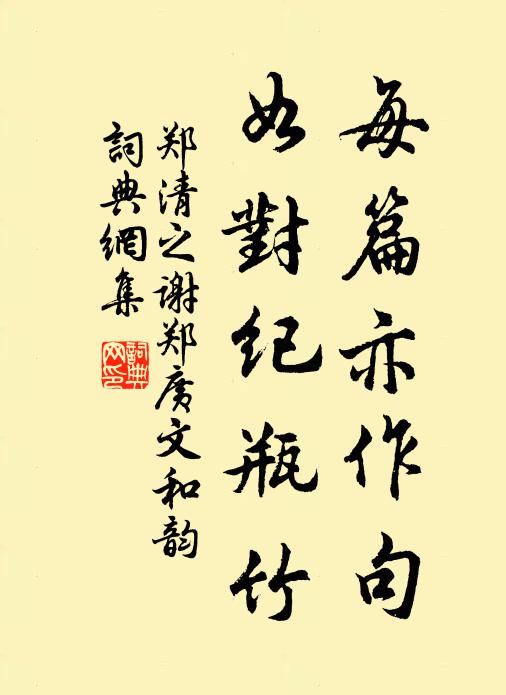 每篇亦作句
如對紀瓶竹
郑清之谢郑廣文和韵
詞典網集
詞典網印